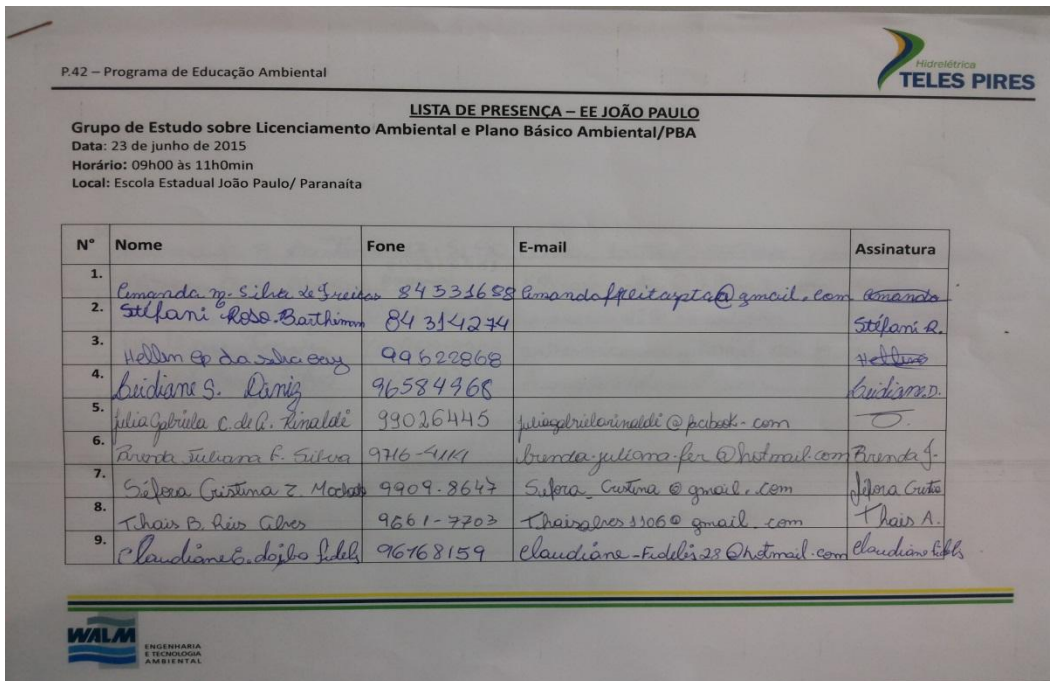 P.42 – Programa de Educação Ambiental
Hidrelétrica
TELES PIRES
LISTA DE PRESENÇA – EE JOÃO PAULO
Grupo de Estudo sobre Licenciamento Ambiental e Plano Básico Ambiental/PBA
Data: 23 de junho de 2015
Horário: 09h00 às 11h0min
Local: Escola Estadual João Paulo/ Paranaíta
N° Nome Fone E-mail Assinatura
1. Amanda M. Silva de Freitas 84531688 Amanda
2. Stéfani Roso 84314274 Stéfani R.
3. Hellen da 99622868
4. S. Daniz 96584968
5. Julia Gabriela C. de A. Rinaldi 99026445 juliagabrielarinaldi@facebook.com
6. Brenda Juliana F. Silva 9716-4114 brenda-juliana-fer@hotmail.com Brenda J.
7. Séfora Cristina Z. Machado 9909-8647 Sefora_Cristina@gmail.com Séfora
8. Thais B. Reis Alves 9661-7703 Thaisalves1106@gmail.com Thais A.
9. Claudiane Fidelis 96768159 Claudiane-Fidelis28@hotmail.com Claudiane Fidelis
WALM
ENGENHARIA
E TECNOLOGIA
AMBIENTAL